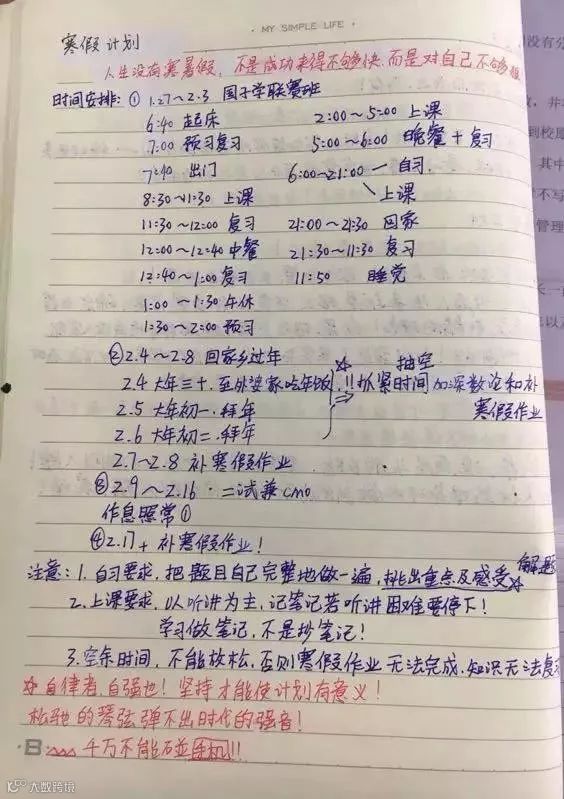 · MY SIMPLE LIFE ·
寒假计划
人生没有寒暑假，不是成功来得不够快，而是对自己不够狠
时间安排：① 1.27～2.3 国子学联赛班
6:40 起床 2:00～5:00 上课
7:00 预习复习 5:00～6:00 晚餐+复习
7:40 出门 6:00～21:00 — 自习
8:30～11:30 上课 上课
11:30～12:00 复习 21:00～21:30 回家
12:00～12:40 中餐 21:30～11:30 复习
12:40～1:00 复习 11:50 睡觉
1:00～1:30 午休
1:30～2:00 预习
② 2.4～2.8 回家乡过年 抽空
2.4 大年三十，至外婆家吃年饭 ☆!!抓紧时间加深数论和补
2.5 大年初一，拜年 ⇒ 寒假作业
2.6 大年初二，拜年
2.7～2.8 补寒假作业
③ 2.9～2.16 · 二试兼CMO
作息照常①
④ 2.17+ 补寒假作业！
注意：1. 自习要求，把题目自己完整地做一遍，挑出重点及感受☆ 解题
2. 上课要求，以听讲为主，记笔记若听讲困难要停下！
学习做笔记，不是抄笔记！
3. 空余时间，不能放松，否则寒假作业无法完成，知识无法复
☆ 自律者，自强也！坚持才能使计划有意义！
松弛的琴弦弹不出时代的强音！
·B: 千万不能碰手机!!
大数跨境
没有分
到校
其中
不写
管理